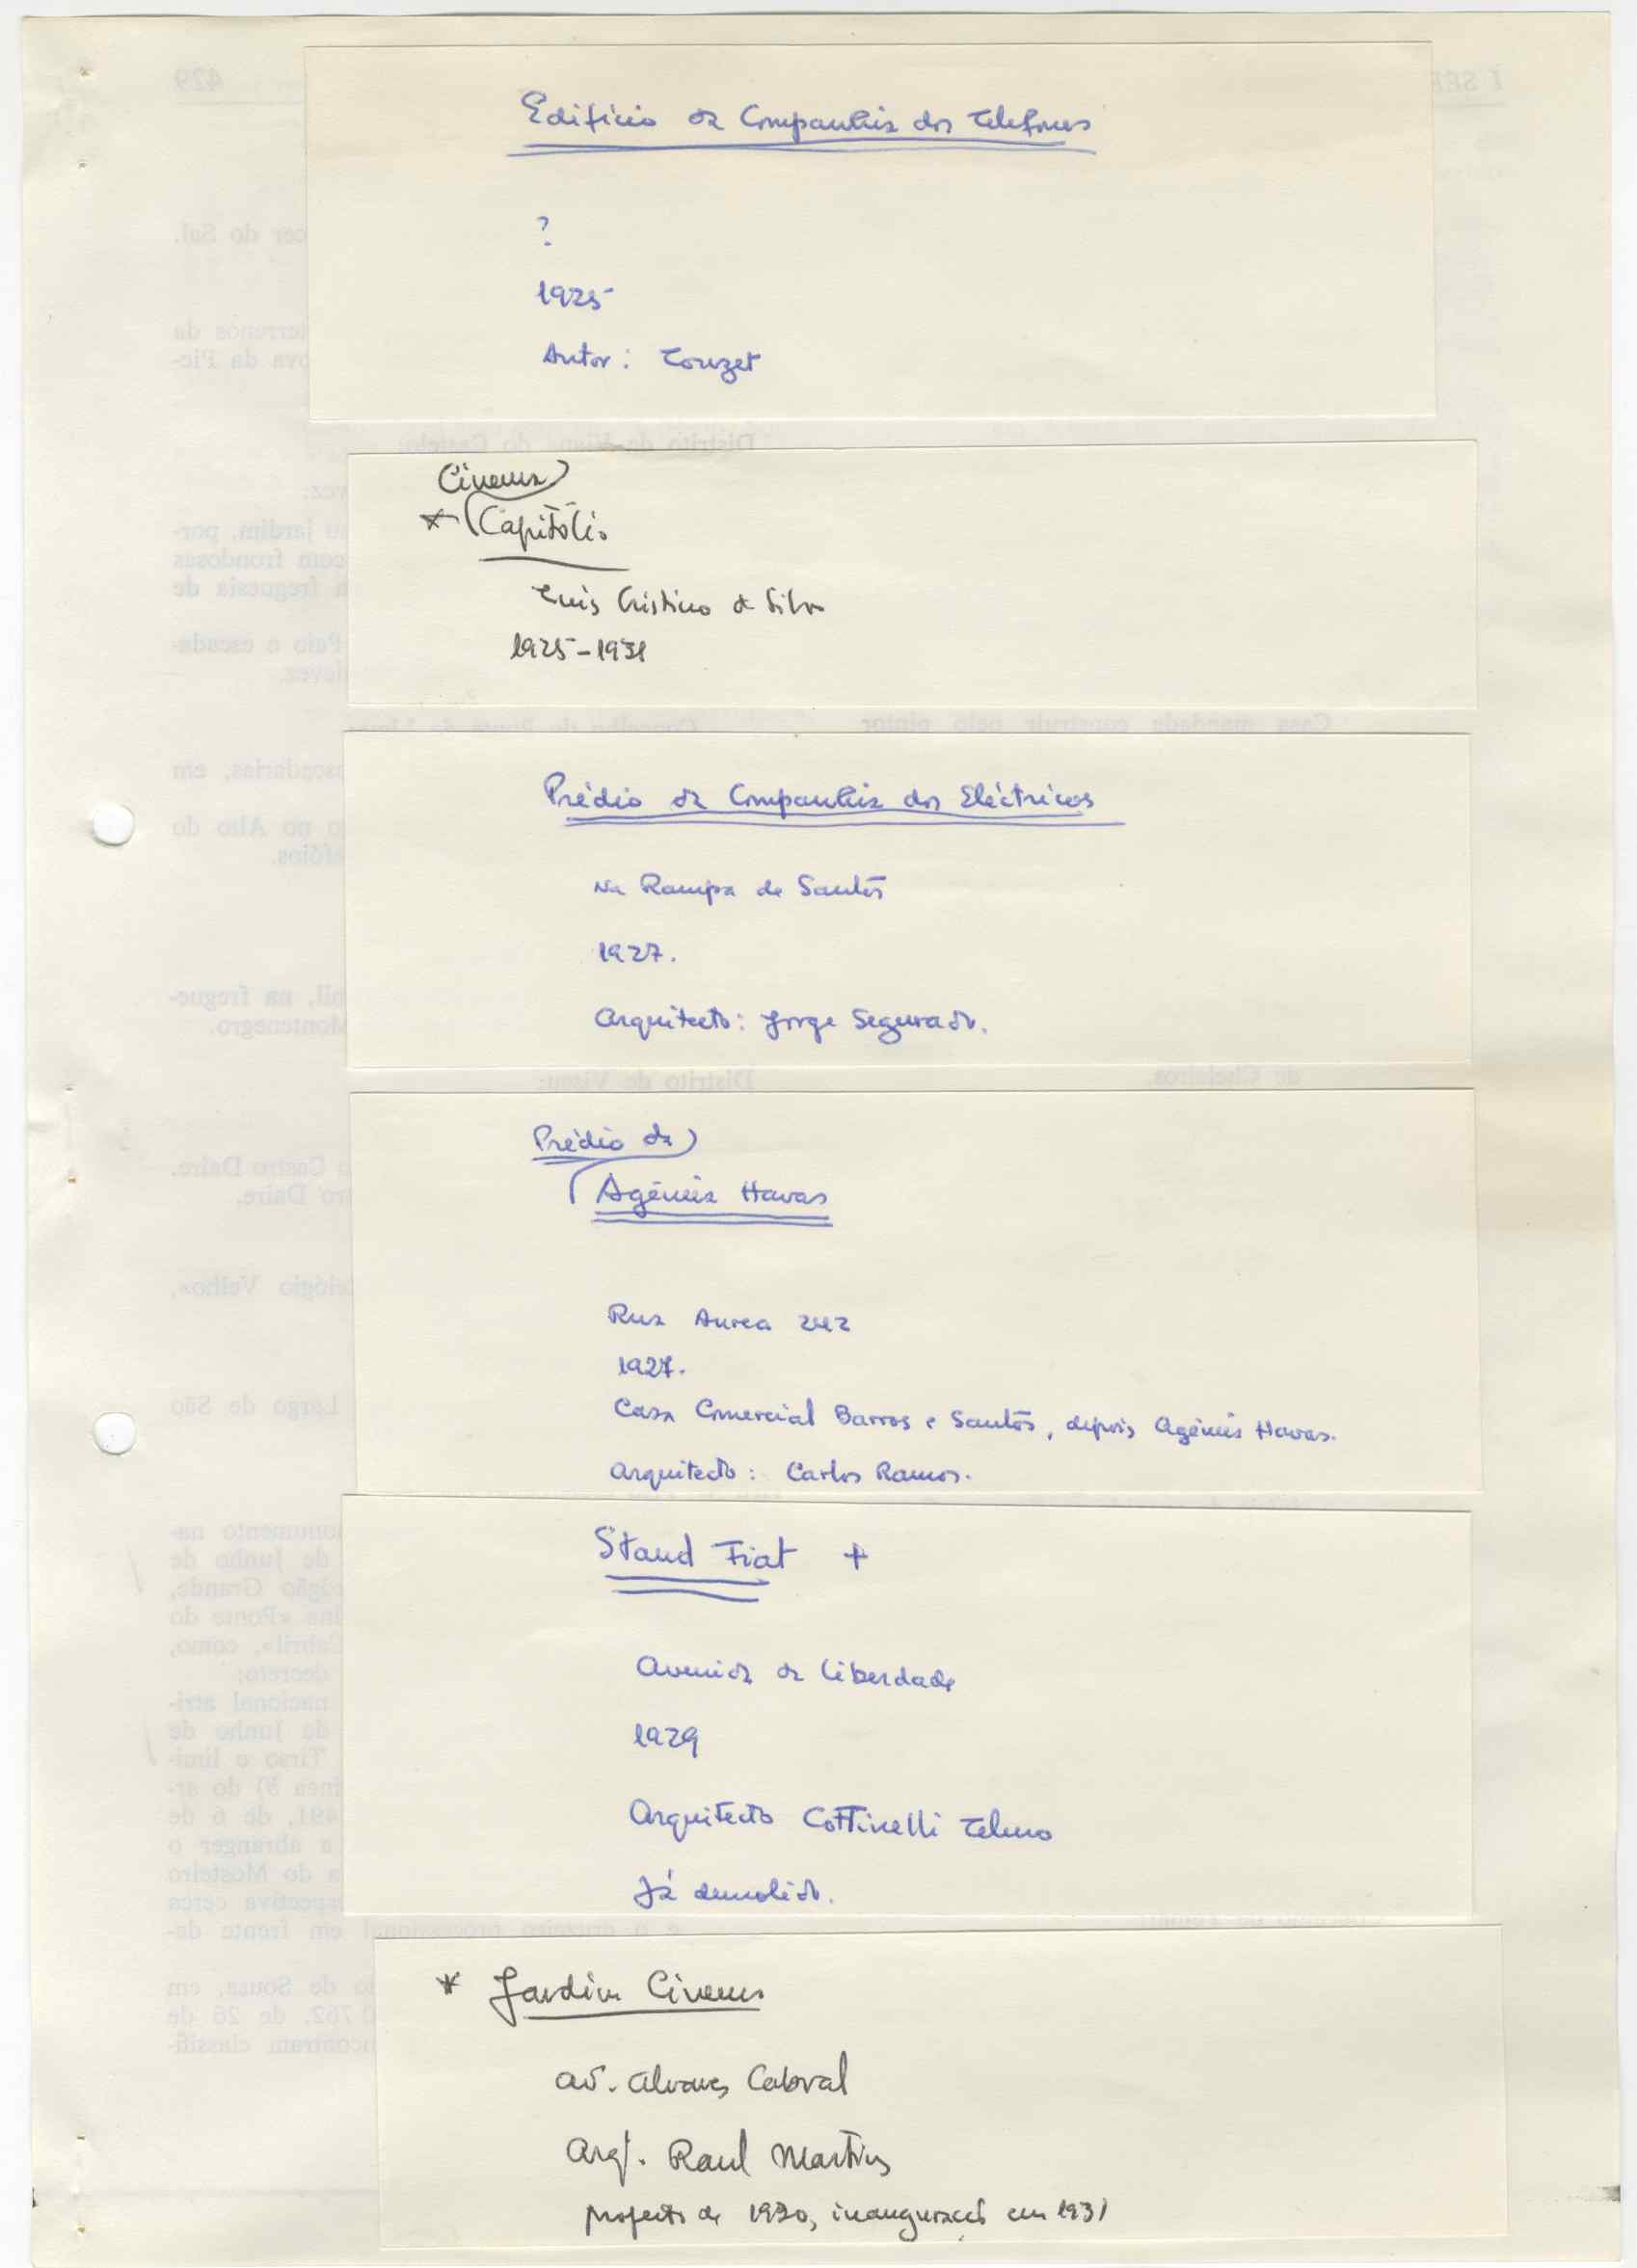 Edifício da Companhia dos Telefones
?
1925
Autor: Touzet
Cinema
* Capitólio
Luis Cristino da Silva
1925-1931
Prédio da Companhia dos Eléctricos
Na Rampa de Santos
1927.
Arquitecto: Jorge Segurado.
Prédio da
Agência Havas
Rua Aurea 242
1927.
Casa Comercial Barros e Santos, depois Agência Havas.
Arquitecto: Carlos Ramos.
Stand Fiat +
Avenida da Liberdade
1929
Arquitecto Cottinelli Telmo
Já demolido.
* Jardim Cinema
Av. Alvares Cabral
Arqt. Raul Martins
projecto de 1930, inauguração em 1931